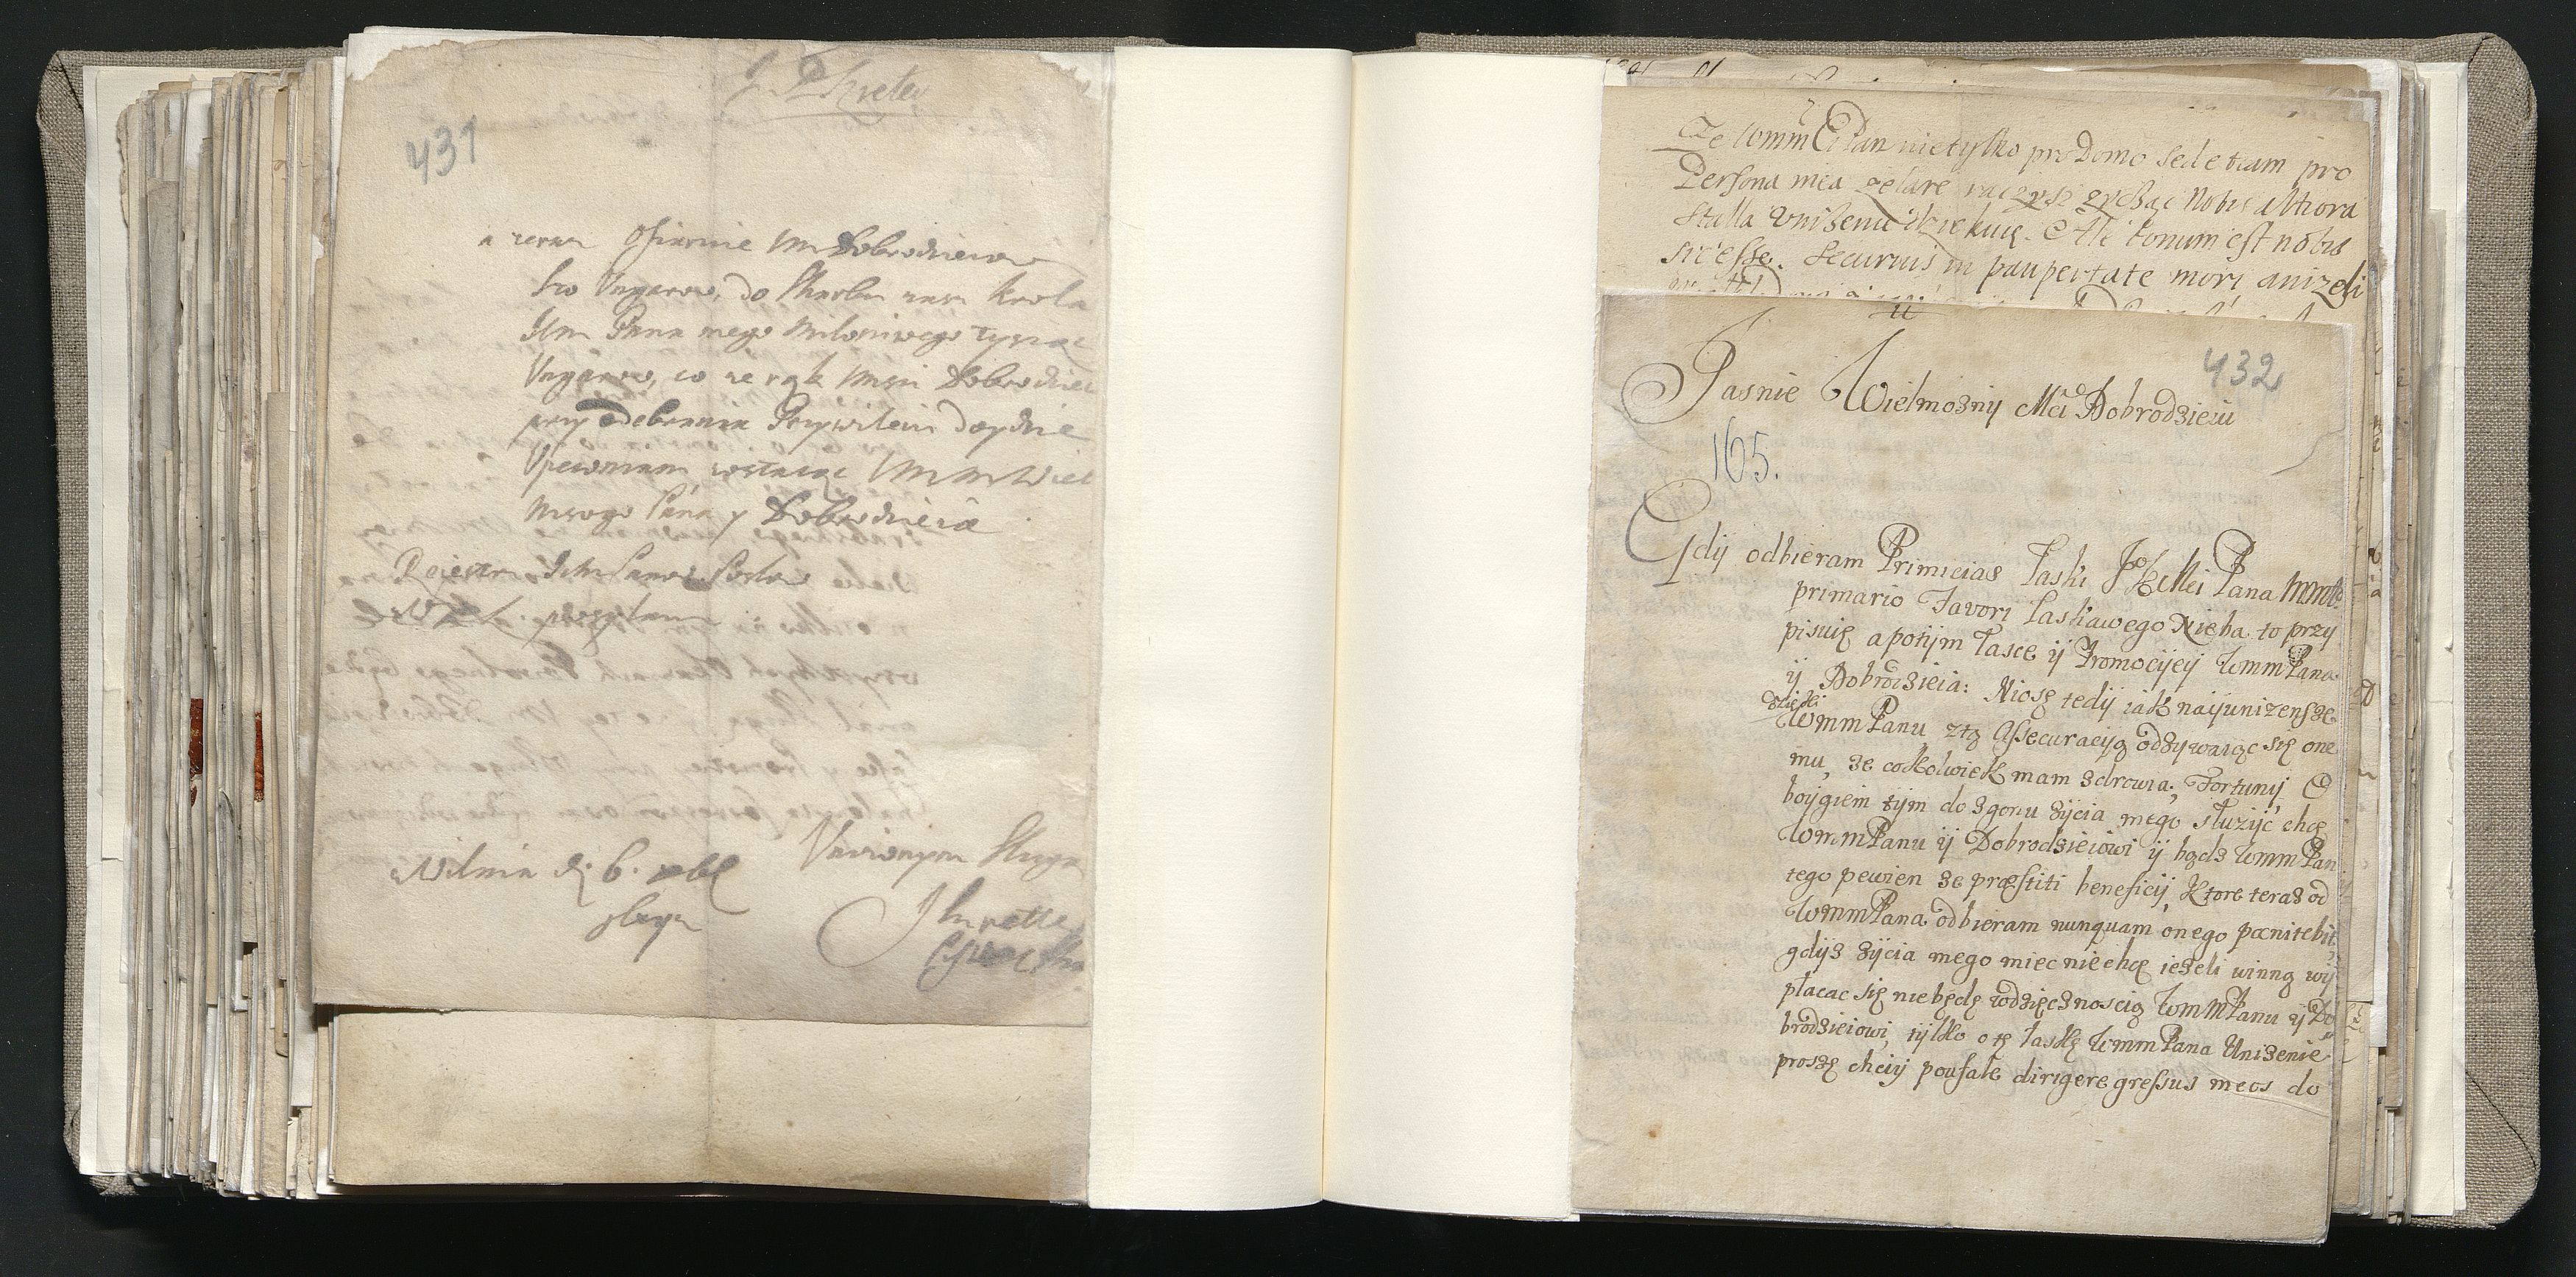 431
a zeraz Ofiaruie Wm Dobrodzieiow
sto Ungarow, do Skarbu zasz Krola
Jm Pana mego Milosciwego tysiąc
Ungarow, co ze rąk Wmsci Dobrodziei
przy odebraniu Przywileiu doydzie
Upewniam zostaiąc WmMWiel
Mscego Pána y Dobrodzieia
Regestr Ichm Panow Posłow
posyłam
Wilnia d. 6. xbr
Uniżonym Sługą
Że WmmMCi Pan nie tylko pro Domo sed etiam pro
Persona mea zelare raczysz życząc Nobis altiora
Stalla Uniżenie dziękuię. Este bonum est nobis
sic esse. Securius in paupertate mori aniżeli
432
Jasnie Wielmożnij Mci Dobrodzieiu
165.
Gdij odbieram Primicias Łaski JKMci Pana MMM
primario Favori Łaskawego Nieba to przy
pisuię a potijm Łasce ij Promocijeij WmmPana
ij Dobrodzieia: Niosę tedij iak naijunizensze
dzięki
WmmPanu ztą Assecuracyą odzywaiąc się one
mu, że cokolwiek mam zdrowia, Fortunij, O
boijgiem tijm do zgonu żijcia mego służijć chcę
WmmPanu ij Dobrodzieiowi ij bądz WmmPan
tego pewien że præstiti beneficij, ktore teraz od
WmmPana odbieram nunquam onego pænitebit,
gdijż żijcia mego miec niechcę ieżeli winną wij
płacac się niebędę wdzięcznoscią WmmPanu ij Do
brodzieiowi, tijlko o tę łaskę WmmPana Unizenie
proszę chciij poufale dirigere gressus meos do